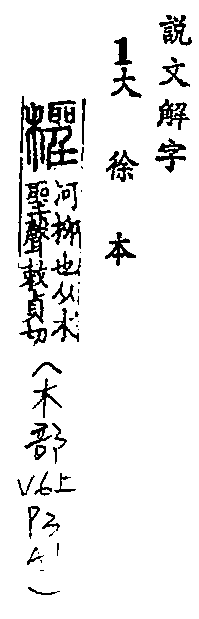 説文解字
1大徐本
檉
河柳也从木
聖聲敕貞切
(木部
V6上
P3